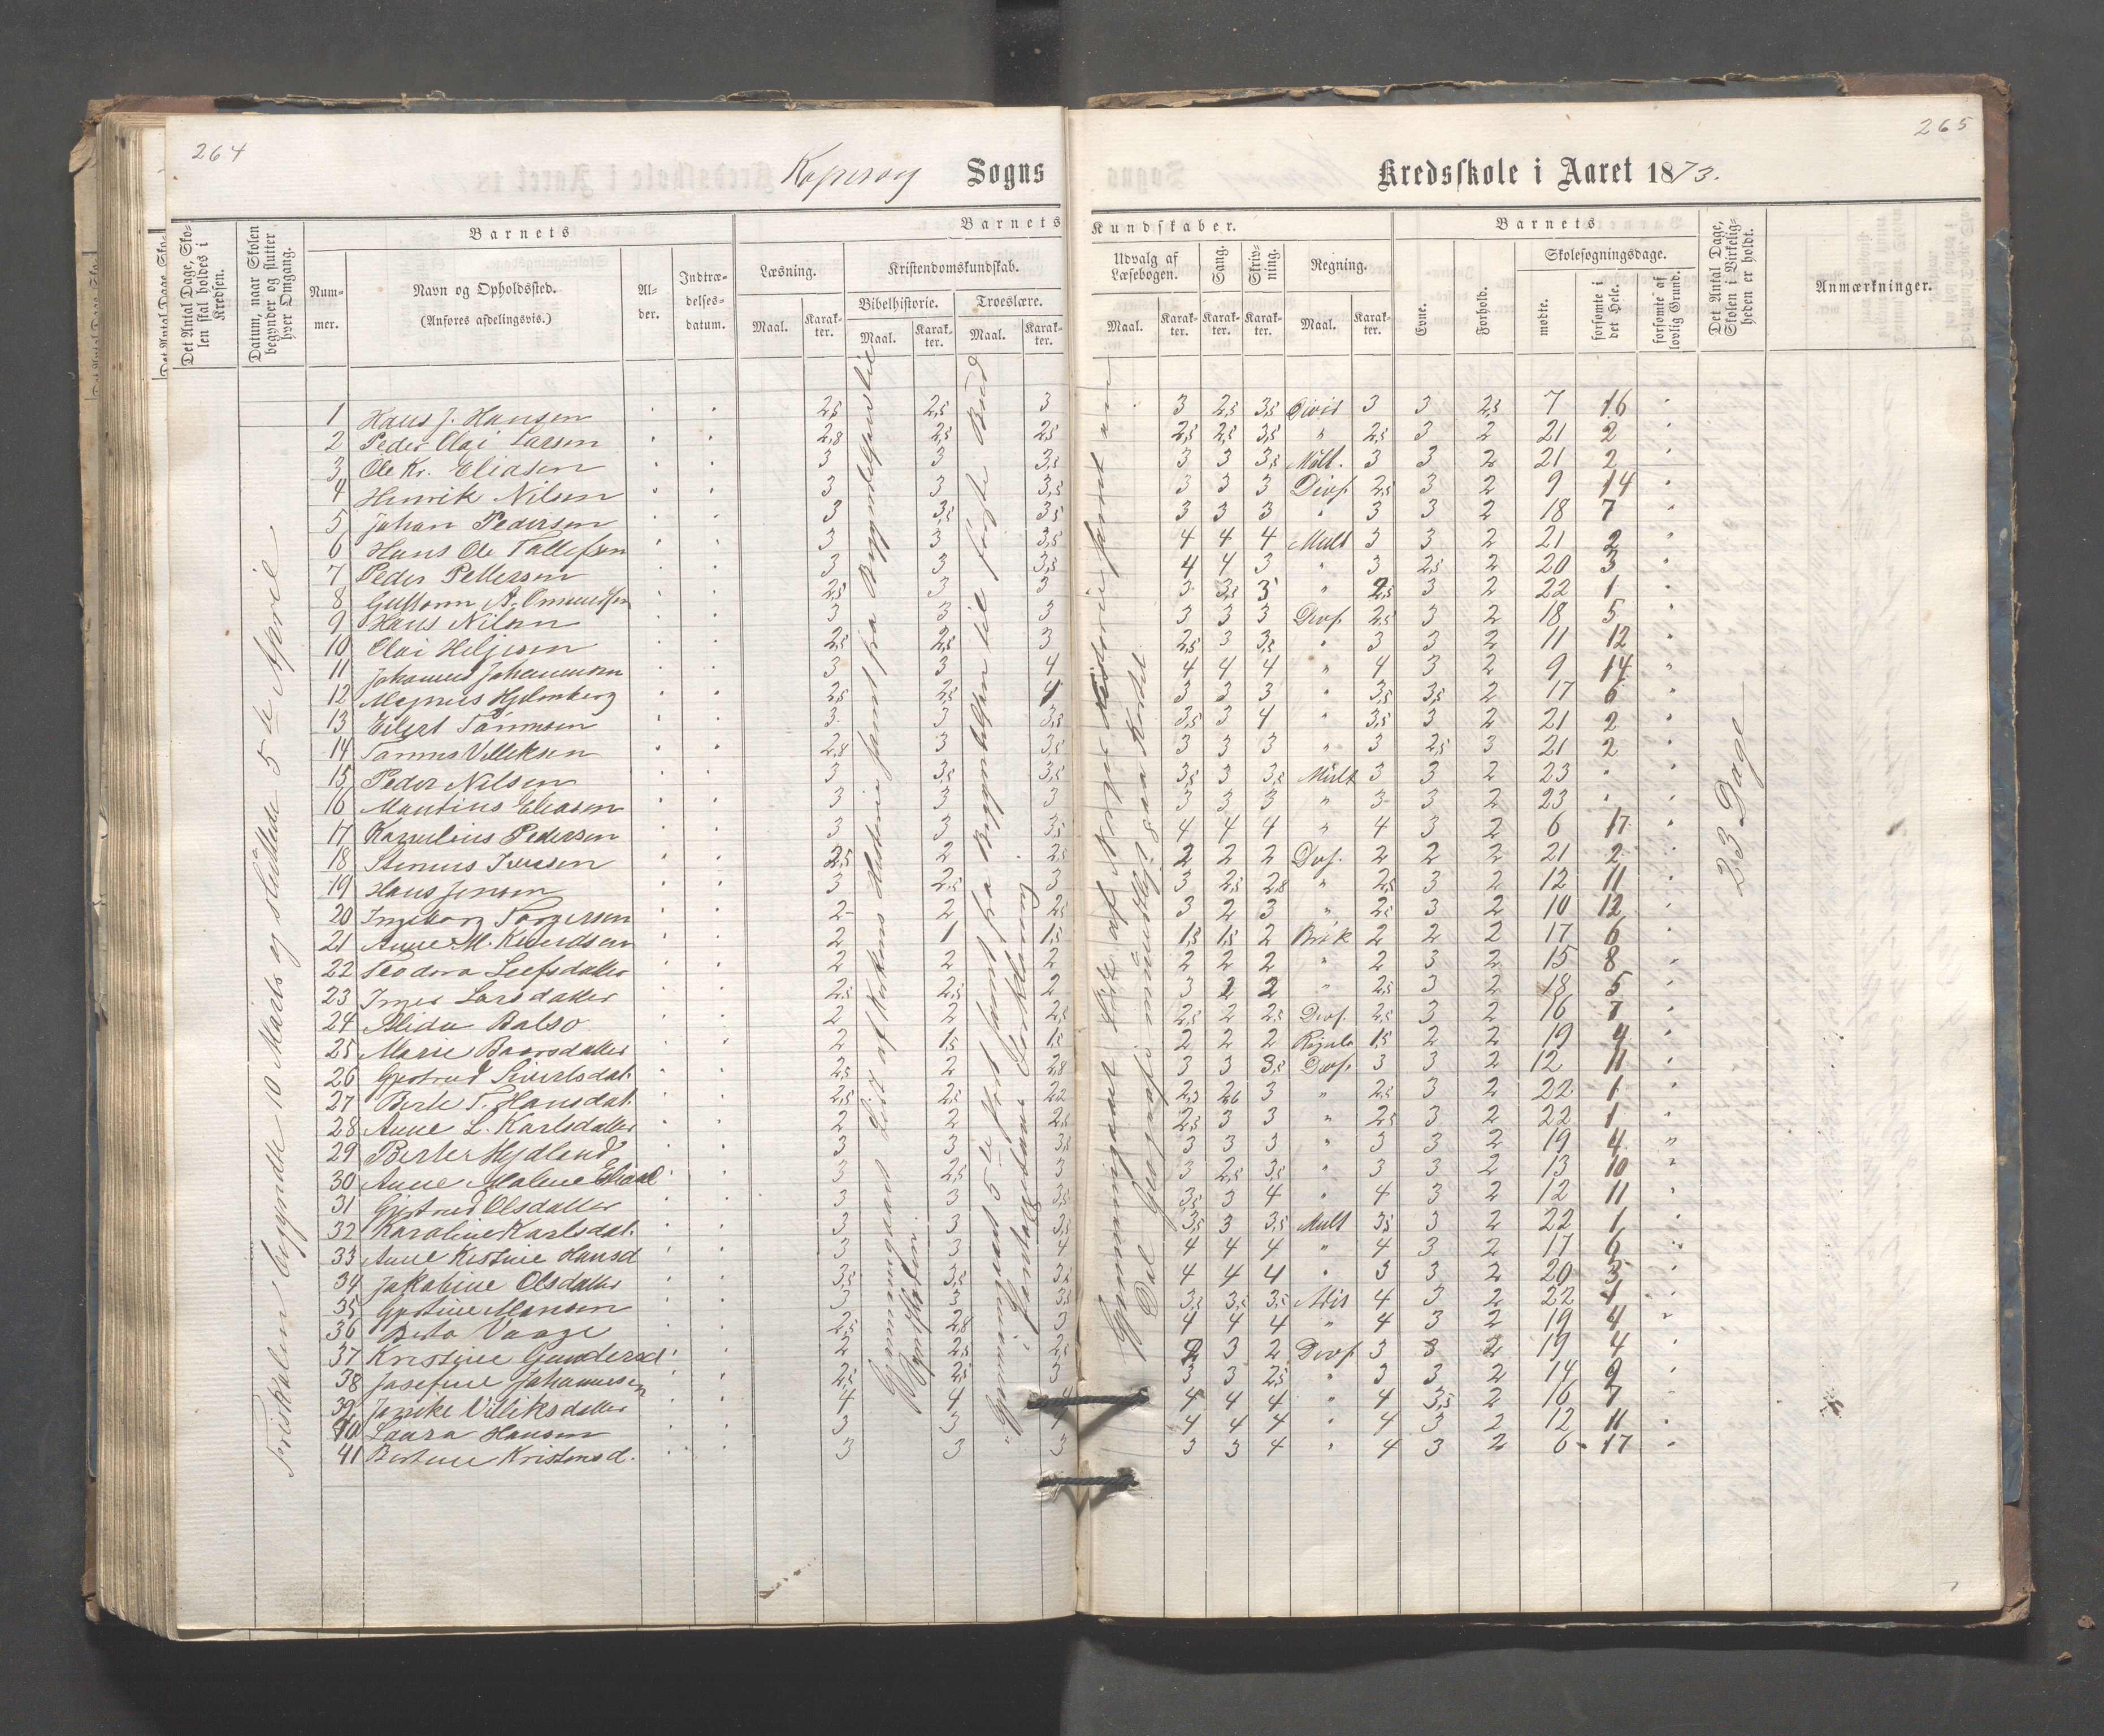 264
265
Kopervig Sogns
Kredsskole i Aaret 1873.
Det Antal Dage, Skolen skal holdes i Kredsen.
Datum, naar Skolen begynder og slutter hver Omgang.
Barnets
Nummer.
Navn og Opholdssted.
(Anføres afdelingsvis.)
Alder.
Indtrædelsesdatum.
Barnets Kundskaber.
Læsning.
Kristendomskundskab.
Bibelhistorie.
Troeslære.
Udvalg af Læsebogen.
Sang.
Skrivning.
Regning.
Maal. Karakter. Maal. Karakter. Maal. Karakter. Maal. Karakter. Karakter. Karakter. Maal. Karakter.
Barnets
Evne.
Forhold.
Skolesøgningsdage.
mødte.
forsømte i det Hele.
forsømte af lovlig Grund.
Det Antal Dage, Skolen i Virkeligheden er holdt.
Anmærkninger.
1 Hans J. Hansen 2,5 2,5 3 3 2,5 3,5 Divis 3 3 2,5 7 16
2 Peder Olai Larsen 2,8 2,5 2,5 2,5 2,5 3,5 " 2,5 3 2 21 2
3 Ole Kr. Eliasen 3 3 3,5 3 3 3,5 Mult. 3 3 2 21 2
4 Henrik Nilsen 3 3 3,5 3 3 3 Divs. 2,5 3 2 9 14
5 Johan Pedersen 3 3,5 3,5 3 3 3 " 3 3 2 18 7
6 Hans Ole Tallefsen 3 3 3,5 4 4 4 Mult 3 3 2 21 2
7 Peder Pettersen 3 3 3,5 4 4 3 " 3 2,5 2 20 3
8 Gustavn A. Omundsen 2,5 3 3 3 3,5 3 " 2,5 3 2 22 1
9 Hans Nilsen 3 3 3 3 3 3 Divs 2,5 3 2 18 5
10 Olai Heljesen 2,5 2,5 3 2,5 3 3,5 " 3 3 2 11 12
11 Johannes Johannesen 3 3 4 4 4 4 " 4 3 2 9 14
12 Magnus 2,5 2,5 4 3 3 3 " 3,5 3,5 2 17 6
13 Eilert Tønnesen 3 3 3,5 3,5 3 4 " 3,5 3 2 21 2
14 Tønnes Villeksen 2,8 3 3,5 3 3 3 " 3 2,5 3 21 2
15 Peder Nilsen 3 3,5 3,5 3,5 3 3,5 Mult 3 3 2 23 "
16 Mautius Eliasen 3 3 3 3 3 3 " 3 3 2 23 "
17 Kornelius Pedersen 3 3 3,5 4 4 4 " 4 3 2 6 17
18 Stenius Iversen 2,5 2 2,5 2 2 2 Divs. 2 2 2 21 2
19 Hans Jensen 3 2,5 3 3 2,5 2,8 " 2,5 3 2 12 11
20 Ingeborg Torgersen 2 2 2,5 3 2 3 " 2,5 3 2 10 12
21 Anne M. Knudsen 2 1 1,5 1,5 1,5 2 Brøk 2 2 2 17 6
22 Teodora Leefsdatter 2 2 2 2 2 2 " 2 3 2 15 8
23 Inger Larsdatter 2,5 2,5 2 3 2 2 " 2,5 3 2 18 5
24 Alida Balso 2 2 2,5 2,5 2 2,5 Divs. 2,5 3 2 16 7
25 Marie Baarsdatter 2 1,5 1,5 2 2 2 Regula 1,5 2 2 19 4
26 Gjertrud Sivertsdat. 2,5 2 2,8 3 3 3,5 Divs. 3 3 2 12 11
27 Berte T. Hansdat. 2,5 2,5 2,2 2,3 2,6 3 " 2,5 3 2 22 1
28 Anne L. Karlsdatter 2 2 2,5 2,5 3 3 " 2,5 3 2 22 1
29 Berte Hydland 3 3 3,5 3 3 3 " 3 3 2 19 4
30 Anne Malene Eliasd 3 2,5 3 3 2,5 3,5 " 3 3 2 13 10
31 Gjertrud Olsdatter 3 3 3,5 3,5 3 4 " 4 3 2 12 11
32 Karoline Karlsdat. 3 3 3,5 3,5 3 3,5 Mult 3,5 3 2 22 1
33 Anne Kristine Hansd 3 3 4 4 4 4 " 4 3 2 17 6
34 Jakobine Olsdatter 3,5 3,5 3,5 4 4 4 " 3 3 2 20 3
35 Gjertine Monsen 3 3 3,5 3,5 3,5 3,5 Adis 4 3 2 22 1
36 Berta Vaage 2,5 2,8 3 4 4 4 " 4 3 2 19 4
37 Kristine Gundersd. 2 2,5 2,5 2 3 2 Divs 3 3 2 19 4
38 Josefine Johannesen 2,5 2,5 3 3 3 2,5 " 3 3 2 14 9
39 Janike Villiksdatter 4 4 4 4 4 4 " 4 3,5 2 16 7
40 Laura Hansen 3 3 4 4 4 4 " 4 3 2 12 11
41 Bertine Kristensd. 3 3 3 3 3 4 " 4 3 2 6 17
Friskolen begyndte 10 Marts og sluttede 5te April
Gjennemgaaet Lidt af Kirkens Historie samt fra Begyndelsen til
Gjennemgaaet 5te Part samt fra Begyndelsen til fjerde Bud
Forklaring
Gjennemgaaet Lidt af Norges Historie samt en
Del Geografi mundtligt paa Kartet
23 Dage